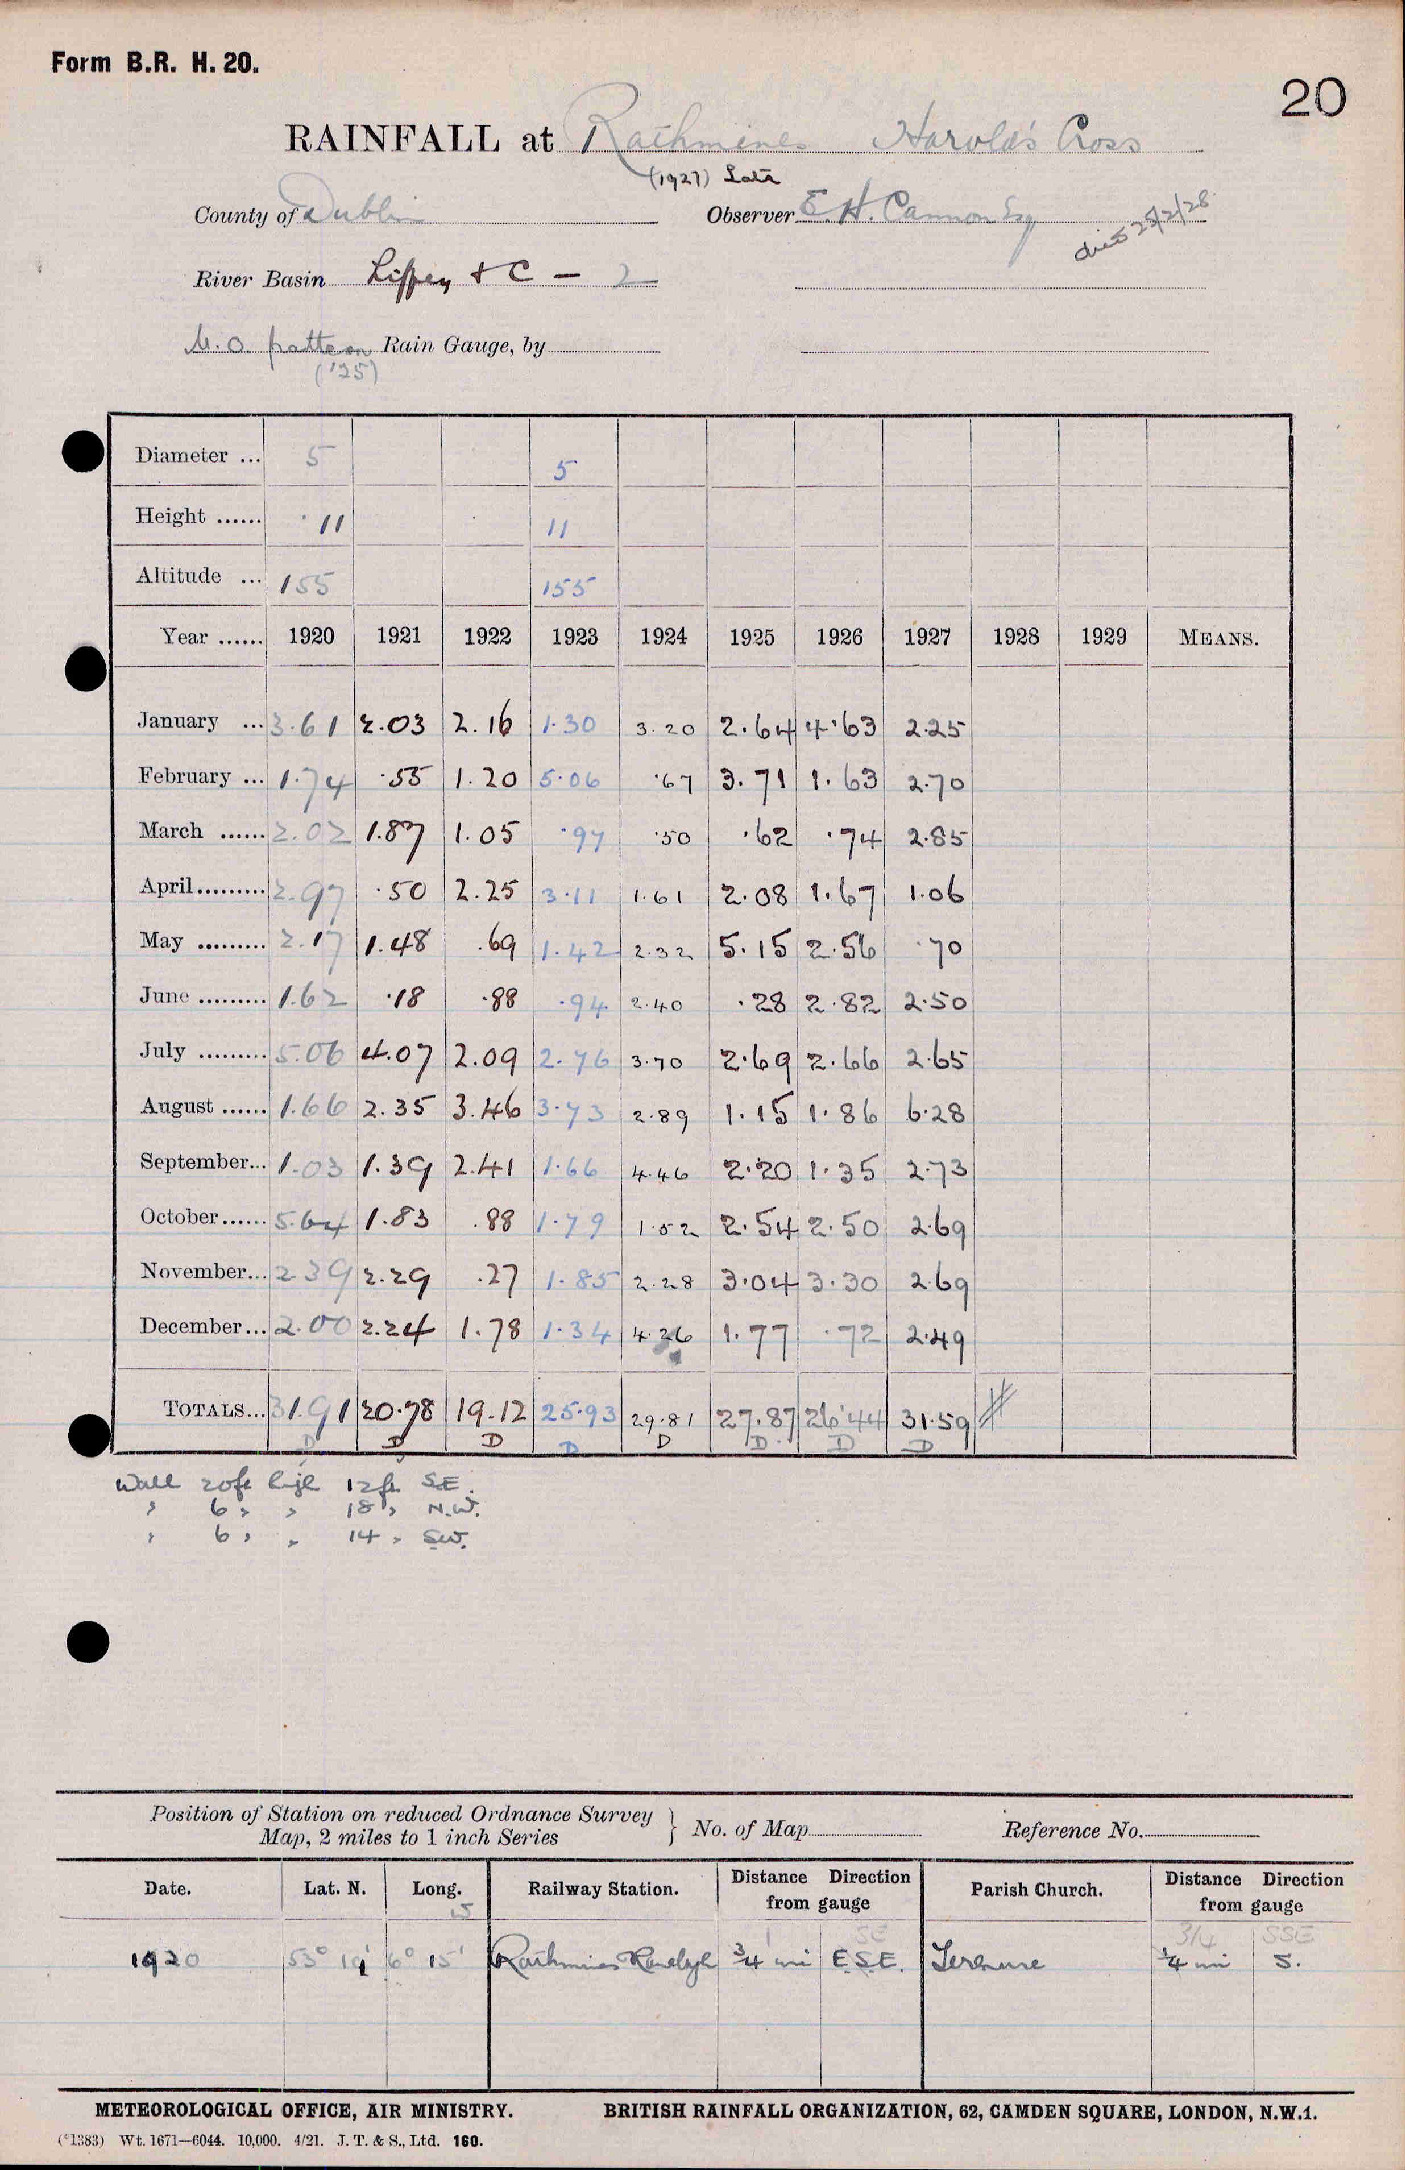 Form B.R. H. 20.
20
RAINFALL at Rathmines Harold's Cross
(1927) Late
County of Dublin Observer E. H. Cannon Esq died 25/2/28
River Basin Liffey & C — 2
M.O. pattern Rain Gauge, by
('25)
Diameter ... 5 5
Height ...... 11 11
Altitude ... 155 155
Year ...... 1920 1921 1922 1923 1924 1925 1926 1927 1928 1929 MEANS.
January ... 3.61 2.03 2.16 1.30 3.20 2.64 4.63 2.25
February ... 1.74 .55 1.20 5.06 .67 3.71 1.63 2.70
March ...... 2.02 1.87 1.05 .97 .50 .62 .74 2.85
April......... 2.97 .50 2.25 3.11 1.61 2.08 1.67 1.06
May ......... 2.17 1.48 .69 1.42 2.32 5.15 2.56 .70
June ......... 1.62 .18 .88 .94 2.40 .28 2.82 2.50
July ......... 5.06 4.07 2.09 2.76 3.70 2.69 2.66 2.65
August ...... 1.66 2.35 3.46 3.73 2.89 1.15 1.86 6.28
September... 1.03 1.39 2.41 1.66 4.46 2.20 1.35 2.73
October...... 5.64 1.83 .88 1.79 1.52 2.54 2.50 2.69
November... 2.39 2.29 .27 1.85 2.28 3.04 3.30 2.69
December... 2.00 2.24 1.78 1.34 4.26 1.77 .72 2.49
TOTALS... 31.91 20.78 19.12 25.93 29.81 27.87 26.44 31.59
D D D D D D D D
Wall 20ft high 12ft S.E.
" 6 " " 18 " N.W.
" 6 " " 14 " SW.
Position of Station on reduced Ordnance Survey
Map, 2 miles to 1 inch Series } No. of Map Reference No.
Date. Lat. N. Long. Railway Station. Distance Direction from gauge Parish Church. Distance Direction from gauge
W
1 SE 3/4 SSE
1920 53° 19' 6° 15' Rathmines Ranelagh 3/4 mi E.S.E. Terenure 1/4 mi S.
METEOROLOGICAL OFFICE, AIR MINISTRY. BRITISH RAINFALL ORGANIZATION, 62, CAMDEN SQUARE, LONDON, N.W.1.
(*1383) Wt. 1671—6044. 10,000. 4/21. J. T. & S., Ltd. 160.